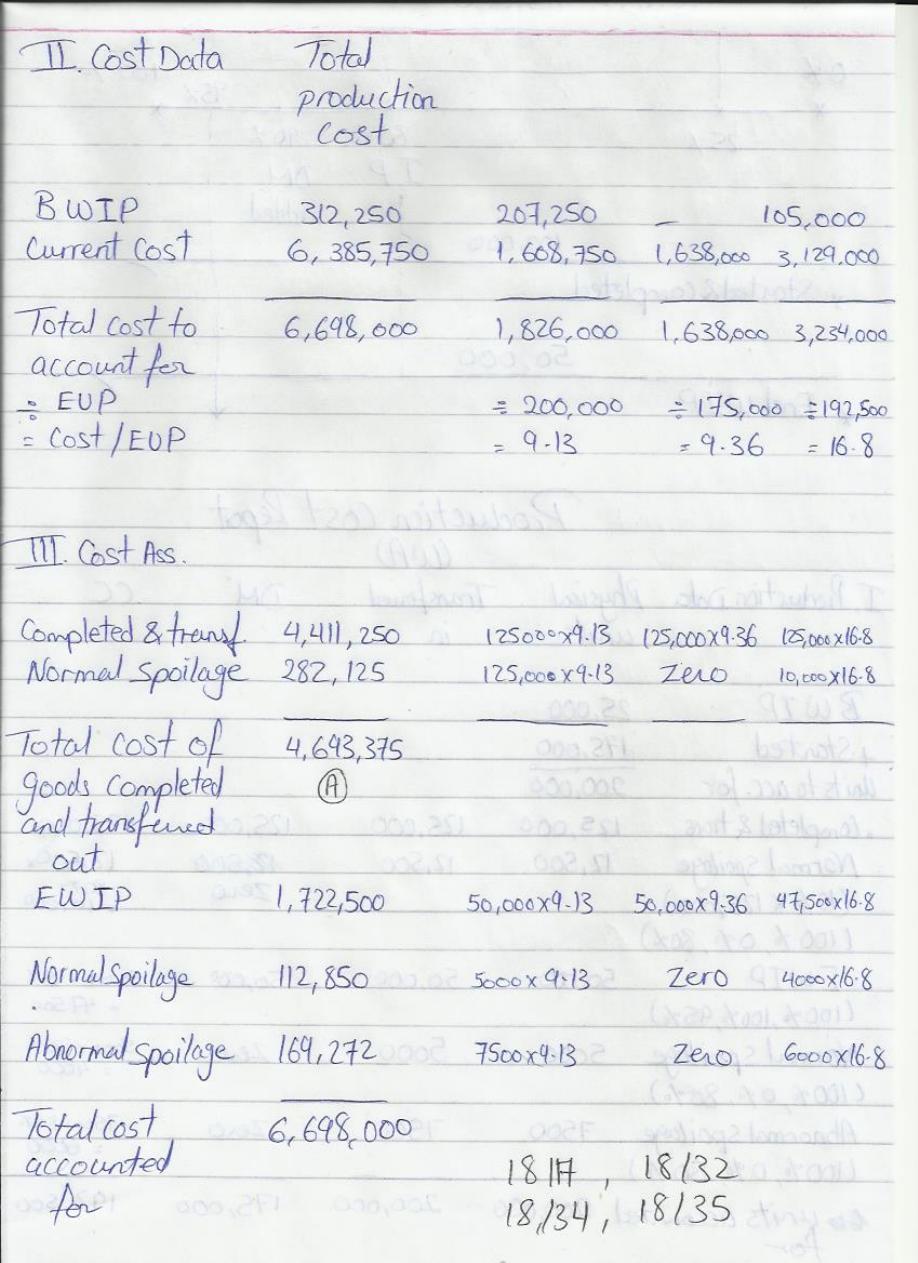 II. Cost Data Total
production
cost
BWIP 312,250 207,250 – 105,000
Current Cost 6,385,750 1,608,750 1,638,000 3,129,000
Total cost to 6,698,000 1,826,000 1,638,000 3,234,000
account for
÷ EUP ÷ 200,000 ÷ 175,000 ÷ 192,500
= Cost/EUP = 9.13 = 9.36 = 16.8
III. Cost Ass.
Completed & transf. 4,411,250 125000x9.13 125,000x9.36 125,000x16.8
Normal Spoilage 282,125 125,000x9.13 Zero 10,000x16.8
Total cost of 4,693,375
goods completed A
and transferred
out
EWIP 1,722,500 50,000x9.13 50,000x9.36 47,500x16.8
Normal Spoilage 112,850 5000x9.13 Zero 4000x16.8
Abnormal Spoilage 169,272 7500x9.13 Zero 6000x16.8
Total cost 6,698,000
accounted 18/17, 18/32
for 18/34, 18/35